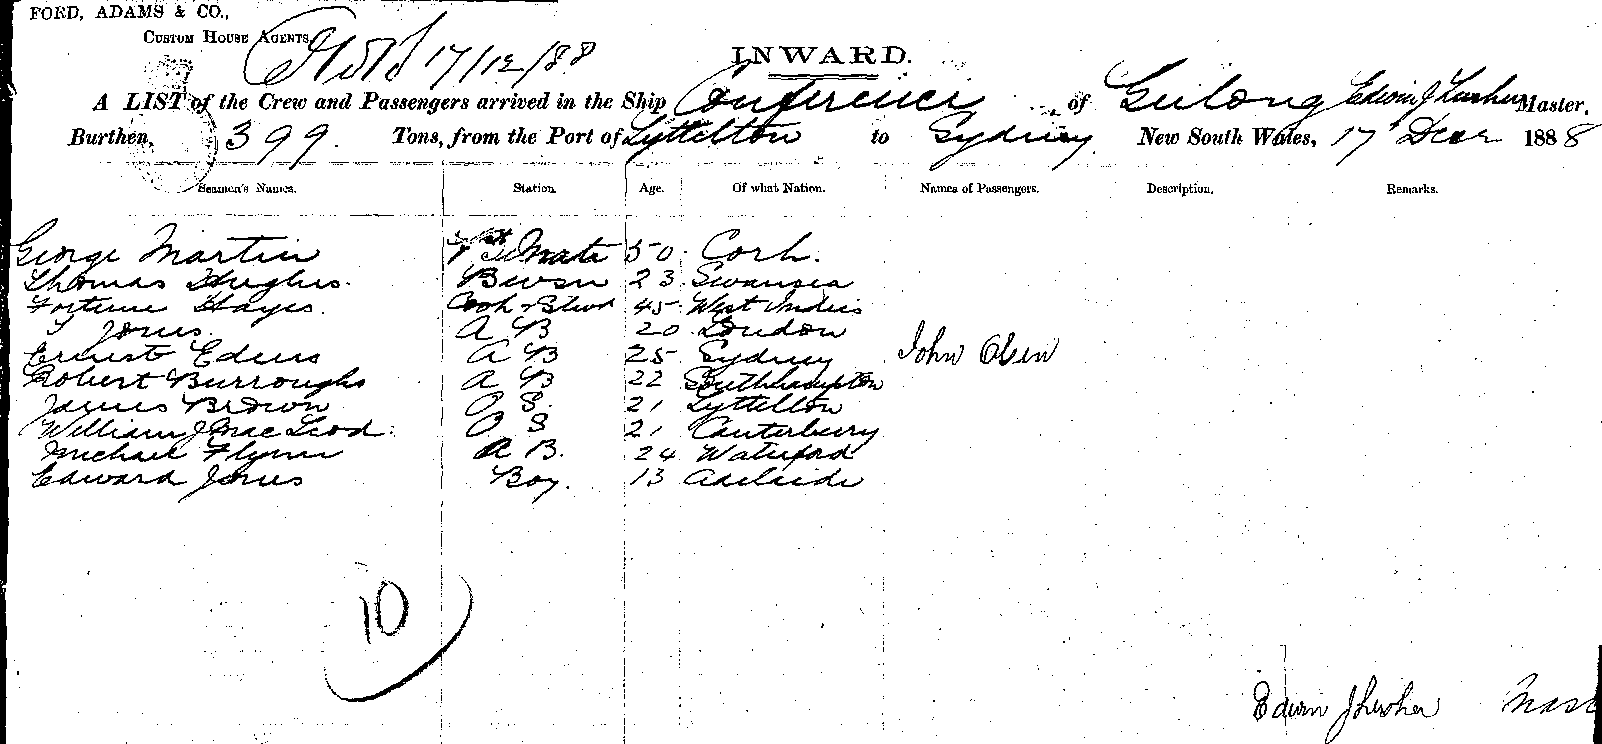 FORD, ADAMS & CO.,
CUSTOM HOUSE AGENTS
17/12/88
INWARD.
A LIST of the Crew and Passengers arrived in the Ship Conference of Geelong Edwin J Master.
Burthen, 399. Tons, from the Port of Lyttelton to Sydney New South Wales, 17th Decr 1888
Seamen's Names. Station. Age. Of what Nation. Names of Passengers. Description. Remarks.
George Martin 1st Mate 50 Cork.
Thomas Hughes. Bosn 23 Swansea
Fortune Hayes. Cook & Stwd 45 West Indies
Jones. A B 20 London
Ernest Edens A B 25 Sydney John Olsen
Robert Burroughs A B 22 Southhampton
James Brown O S. 21 Lyttelton
William J MacLeod. O S 21 Canterbury
Michael Flynn A B. 24 Waterford
Edward Jones Boy. 13 Adelaide
10
Edwin J Mast